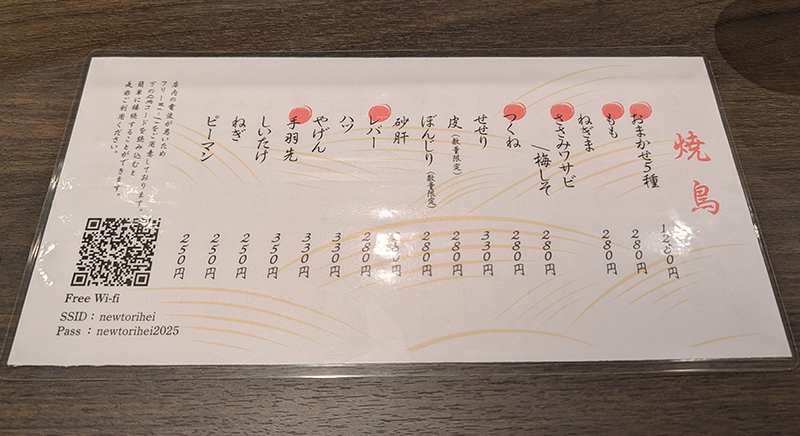 焼鳥
おまかせ5種 1280円
もも 280円
ねぎま 280円
ささみワサビ
/梅しそ 280円
つくね 280円
せせり 330円
皮(数量限定) 280円
ぼんじり(数量限定) 280円
砂肝 円
レバー 280円
ハツ 330円
やげん 330円
手羽先 350円
しいたけ 250円
ねぎ 250円
ピーマン 250円
店内の電波が悪いため
フリーWi-fiをご用意しております。
下のQRコードを読み込むと
簡単に接続することができます。
是非ご利用ください。
Free Wi-fi
SSID : newtorihei
Pass : newtorihei2025